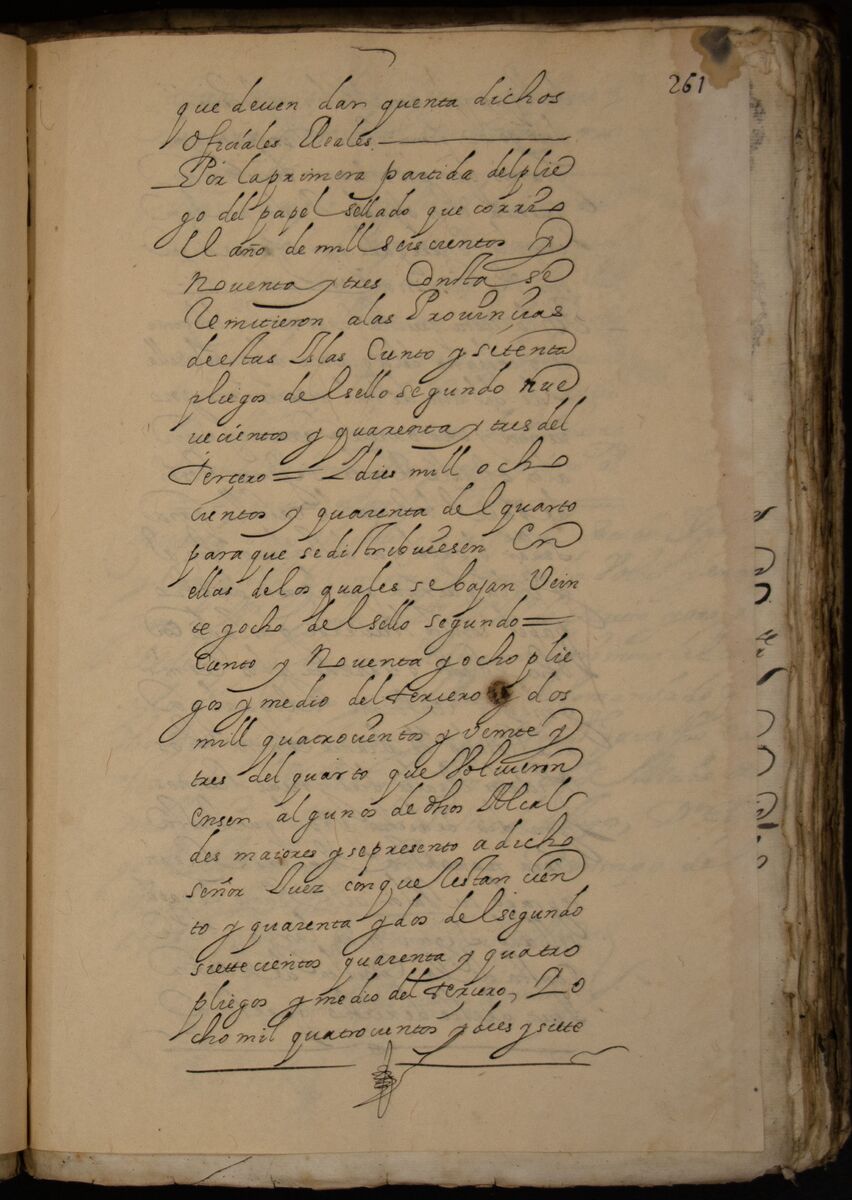 261
que deuen dar quenta dichos
oficiales Reales.
Por la primera partida del plie
go del papel sellado que corrio
El año de mill seiscientos y
Nouenta y tres Consta se
Remitieron a las Prouincias
de estas Islas Ciento y setenta
pliegos del sello segundo nue
uecientos y quarenta y tres del
tercero = Y dies mill ocho
cientos y quarenta del quarto
para que se distribuiesen En
ellas de los quales se bajan Vein
te y ocho del sello segundo =
Ciento y Nouenta y ocho plie
gos y medio del tercero y dos
mill quatrocientos y veinte y
tres del quarto que Voluieron
enser algunos de dhos Alcal
des maiores y se presento a dicho
señor Juez con que Restan cien
to y quarenta y dos del segundo
siettecientos quarenta y quatro
pliegos y medio del tercero, Y o
cho mil quatrocientos y dies y siette